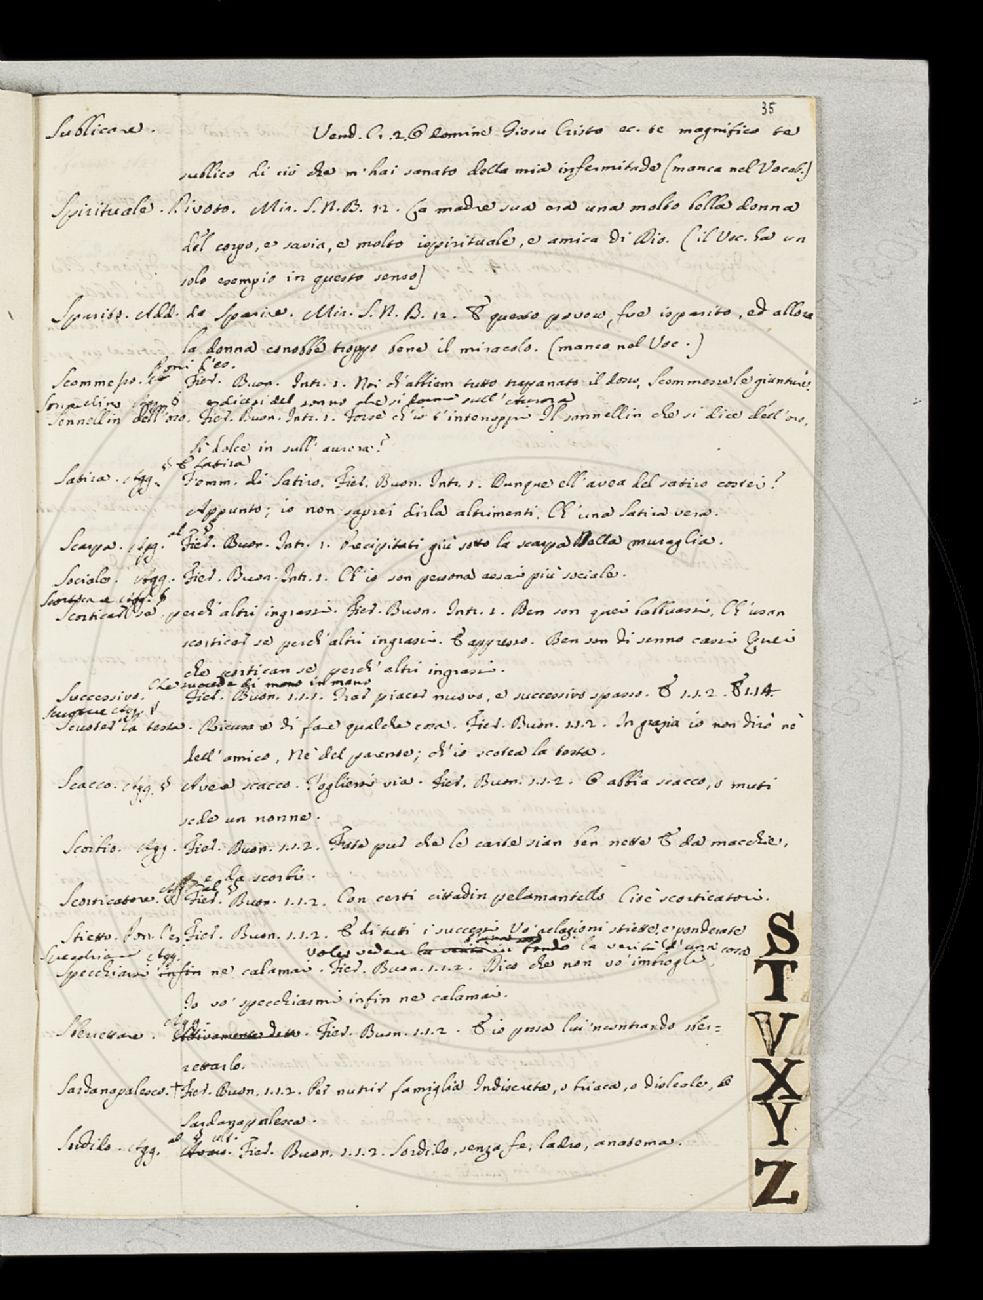 35
Sublicare. Vend. Cr. 2. Domine Giesu Cristo ec. te magnifico te
sublico di ciò che m'hai sanato della mia infermitade (manca nel Vocab.)
Spirituale. Divoto. Mir. S. N. B. 12. La madre sua era una molto bella donna
del corpo, e savia, e molto ispirituale, e amica di Dio. (il Voc. ha un
solo esempio in questo senso)
Sparito. Add. da Sparire. Mir. S. N. B. 12. E questo povero, fue isparito, ed allora
la donna conobbe troppo bene il miracolo. (manca nel Voc.)
Scommesso. Fier. Buon. Intr. 1. Noi ch'abbiem tutto trapanato il dosso, Scommesse le giunture,
e dicesi del sonno che si dorme sull'aurora
Sonnellin dell'oro. Fier. Buon. Intr. 1. Forse ch'io t'interroppi Il sonnellin che si dice dell'oro,
Sì dolce in sull'aurora?
§ E Satira
Satira. Agg. Femm. di Satiro. Fier. Buon. Intr. 1. Dunque ell'avea del satiro costei?
Appunto; io non saprei dirla altrimenti, Ch'una Satira vera.
al §
Scarpa. Agg. Fier. Buon. Intr. 1. Precipitati giù sotto la scarpa Della muraglia.
Sociale. Agg. Fier. Buon. Intr. 1. Ch'io son persona assai più sociale.
Scorticar se, perch'altri ingrassi. Fier. Buon. Intr. 1. Ben son quei babbuassi, Ch'usan
scorticar se perch'altri ingrassi. E appresso. Ben son di senno cassi Quei
che scortican se, perch'altri ingrassi.
Che succede di mano in mano
Successivo. Fier. Buon. 1.1.1. Trar piacer nuovo, e successivo spasso. E 1.1.2. E 1.1.4
Scuoter la testa. Ricusare di fare qualche cosa. Fier. Buon. 1.1.2. In grazia io non dirò nè
dell'amico, Nè del parente; ch'io scotea la testa.
Scacco. Agg. § Avere scacco. Togliersi via. Fier. Buon. 1.1.2. O abbia scacco, o muti
sede un nonne.
Scorbio. Agg. Fier. Buon. 1.1.2. Fate pur che le carte sian ben nette E da macchie,
e da scorbi.
Scorticatore. Agg. al § Fier. Buon. 1.1.2. Con certi cittadin pelamantello Cioè scorticatori.
Stietto. Fier. Buon. 1.1.2. E di tutti i successi Vo' relazioni stiette, e ponderate
Voler vedere la verità d'una cosa
Specchiarsi infin ne' calamai. Fier. Buon. 1.1.2. Dico che non vo' imbrogli,
Io vo' specchiarmi infin ne calamai.
Agg.
Sberrettare. Fier. Buon. 1.1.2. E io posso lui 'ncontrando sber=
rettarlo.
Sardanapalesco. † Fier. Buon. 1.1.2. Per nutrir famiglia Indiscreta, o briaca, o disleale, O
Sardanapalesca.
al § ult.
Sordido. Agg. Avaro. Fier. Buon. 1.1.2. Sordido, senza fe, ladro, anatema.
S
T
V
X
Y
Z